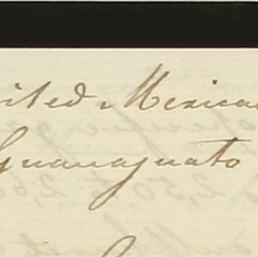 ited Mexica
Guanaguato